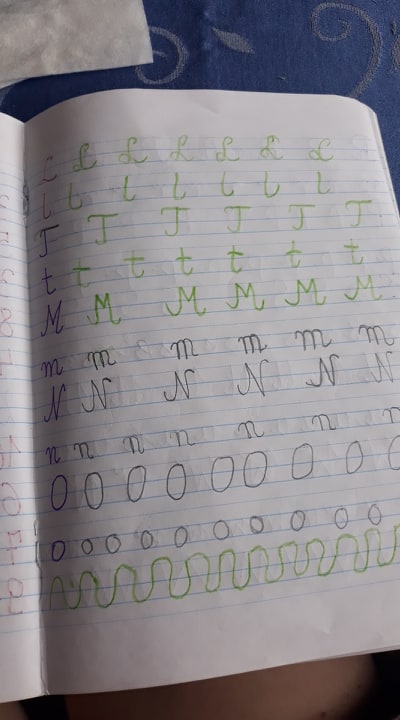 L L L L L L L
l l l l l l l
T T T T T T
t t t t t t t
M M M M M M
m m m m m m
N N N N N N
n n n n n n n
O O O O O O O O O
o o o o o o o o o o